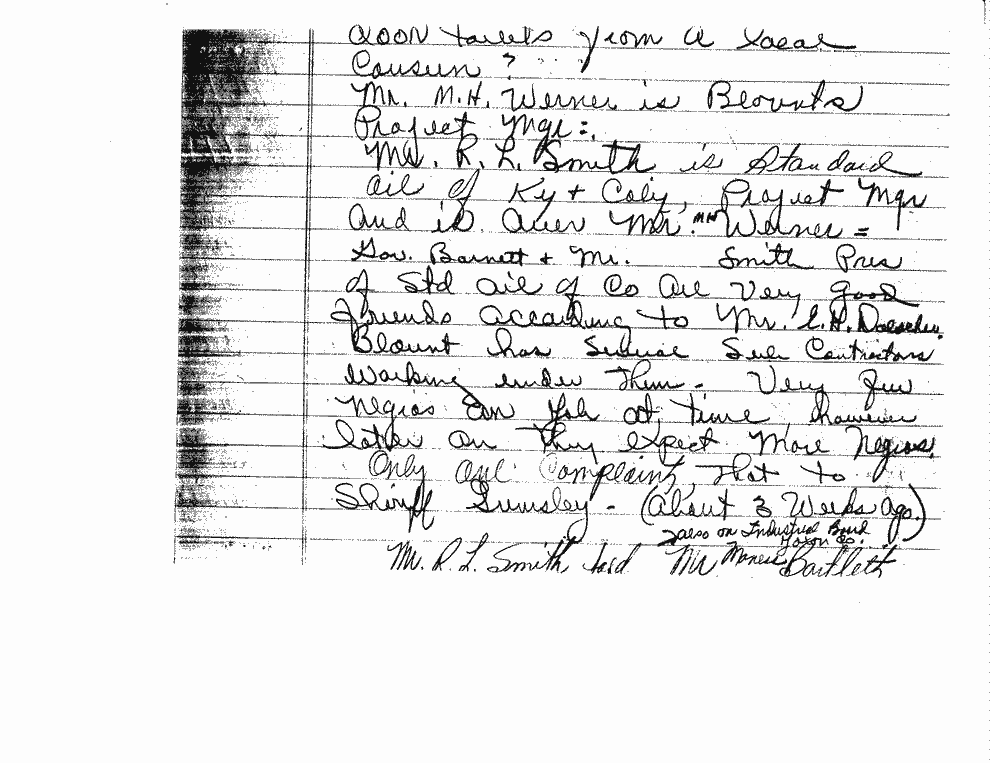 from a Local
Cousin ?
Mr. M.H. Werner is Blounts
Project Mgr =.
Mr. R. L. Smith is Standard
Oil of Ky + Coly, Project Mgr
And is Over Mr. MH Werner =
Gov. Barnett + Mr. Smith Pres
of Std Oil of Co Are Very good
friends according to Mr. C.H.
Blount has Several Sub Contractors
Working under them - Very few
Negros on Job at time, however
latter on they expect More Negros.
Only one Complaint, that to
Sheriff Grimsley - (About 3 Weeks ago.)
also on Industrial Board
Jaxon Co.
Mr. R. L. Smith, told Mr Maness Bartlett